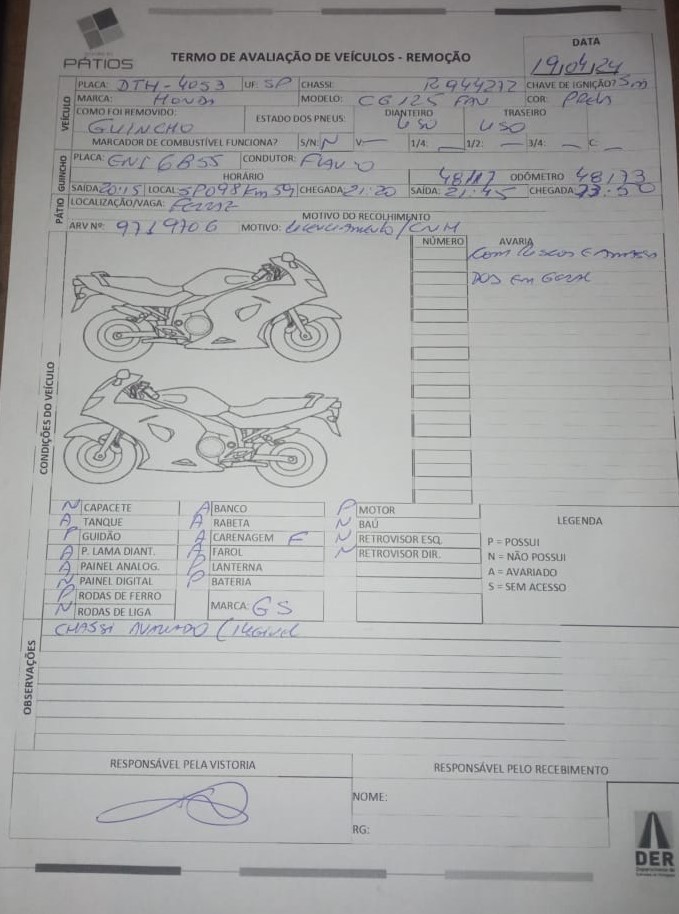 PÁTIOS
TERMO DE AVALIAÇÃO DE VEÍCULOS - REMOÇÃO
DATA
19/04/24
VEÍCULO
PLACA: DTH-4053 UF: SP CHASSI: R944272 CHAVE DE IGNIÇÃO? Sm
MARCA: HONDA MODELO: CG 125 FAN COR: PRETA
COMO FOI REMOVIDO: GUINCHO ESTADO DOS PNEUS: DIANTEIRO USO TRASEIRO USO
MARCADOR DE COMBUSTÍVEL FUNCIONA? S/N: N V: — 1/4: — 1/2: — 3/4: — C: —
GUINCHO
PLACA: CONDUTOR: FLAVIO
HORÁRIO ODÔMETRO
SAÍDA: 20:15 LOCAL: SP098 Km 59 CHEGADA: 21:20 SAÍDA: 21:45 CHEGADA: 23:50
48117 48173
PÁTIO
LOCALIZAÇÃO/VAGA: FERRAZ
MOTIVO DO RECOLHIMENTO
ARV Nº: 9719706 MOTIVO: Licenciamento/CNH
CONDIÇÕES DO VEÍCULO
NÚMERO AVARIA
COM RISCOS E AMASSA
DOS EM GERAL
N CAPACETE A BANCO P MOTOR
A TANQUE A RABETA N BAÚ
P GUIDÃO A CARENAGEM F N RETROVISOR ESQ.
A P. LAMA DIANT. A FAROL N RETROVISOR DIR.
A PAINEL ANALOG. P LANTERNA
N PAINEL DIGITAL P BATERIA
P RODAS DE FERRO
N RODAS DE LIGA MARCA: GS
LEGENDA
P = POSSUI
N = NÃO POSSUI
A = AVARIADO
S = SEM ACESSO
OBSERVAÇÕES
CHASSI AVARIADO (ILEGIVEL
RESPONSÁVEL PELA VISTORIA RESPONSÁVEL PELO RECEBIMENTO
NOME:
RG:
DER